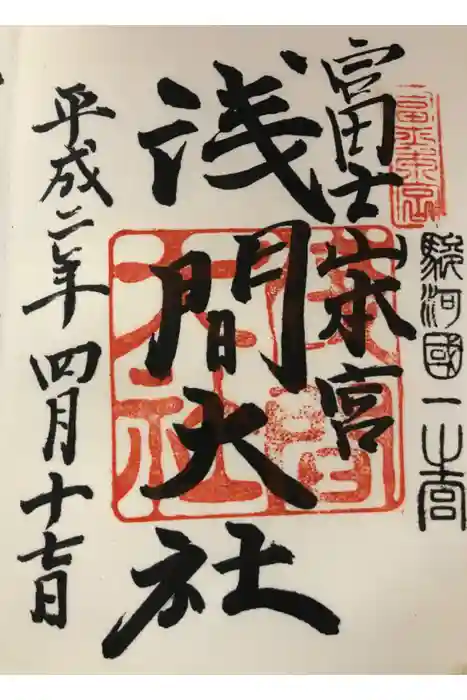 駿河國一之宮
富士山本宮
浅間大社
浅間
大社
平成二年四月十七日